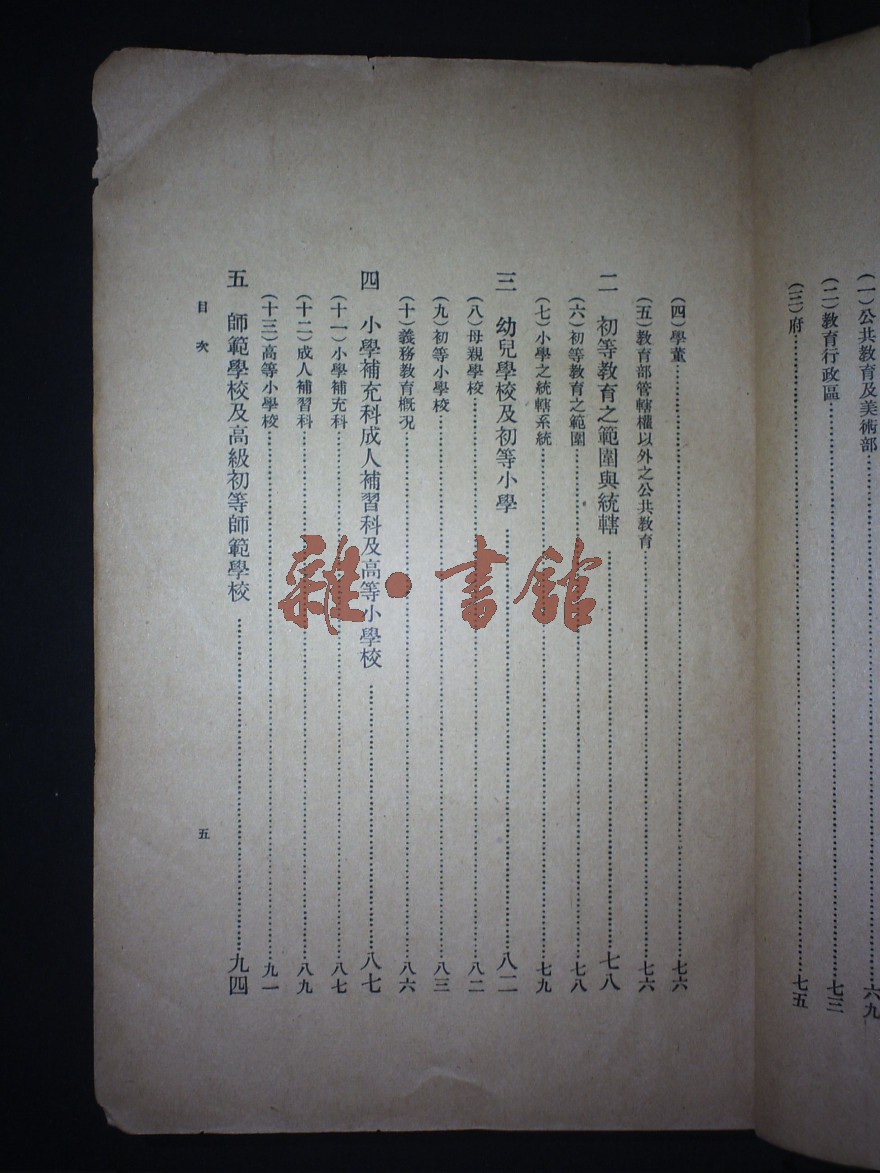 (一)公共教育及美術部……六九
(二)教育行政區……七三
(三)府……七五
(四)學董……七六
(五)教育部管轄權以外之公共教育……七六
二 初等教育之範圍與統轄……七八
(六)初等教育之範圍……七八
(七)小學之統轄系統……七九
三 幼兒學校及初等小學……八二
(八)母親學校……八二
(九)初等小學校……八三
(十)義務教育概况……八六
四 小學補充科成人補習科及高等小學校……八七
(十一)小學補充科……八七
(十二)成人補習科……八九
(十三)高等小學校……九一
五 師範學校及高級初等師範學校……九四
目次 五
雜·書館